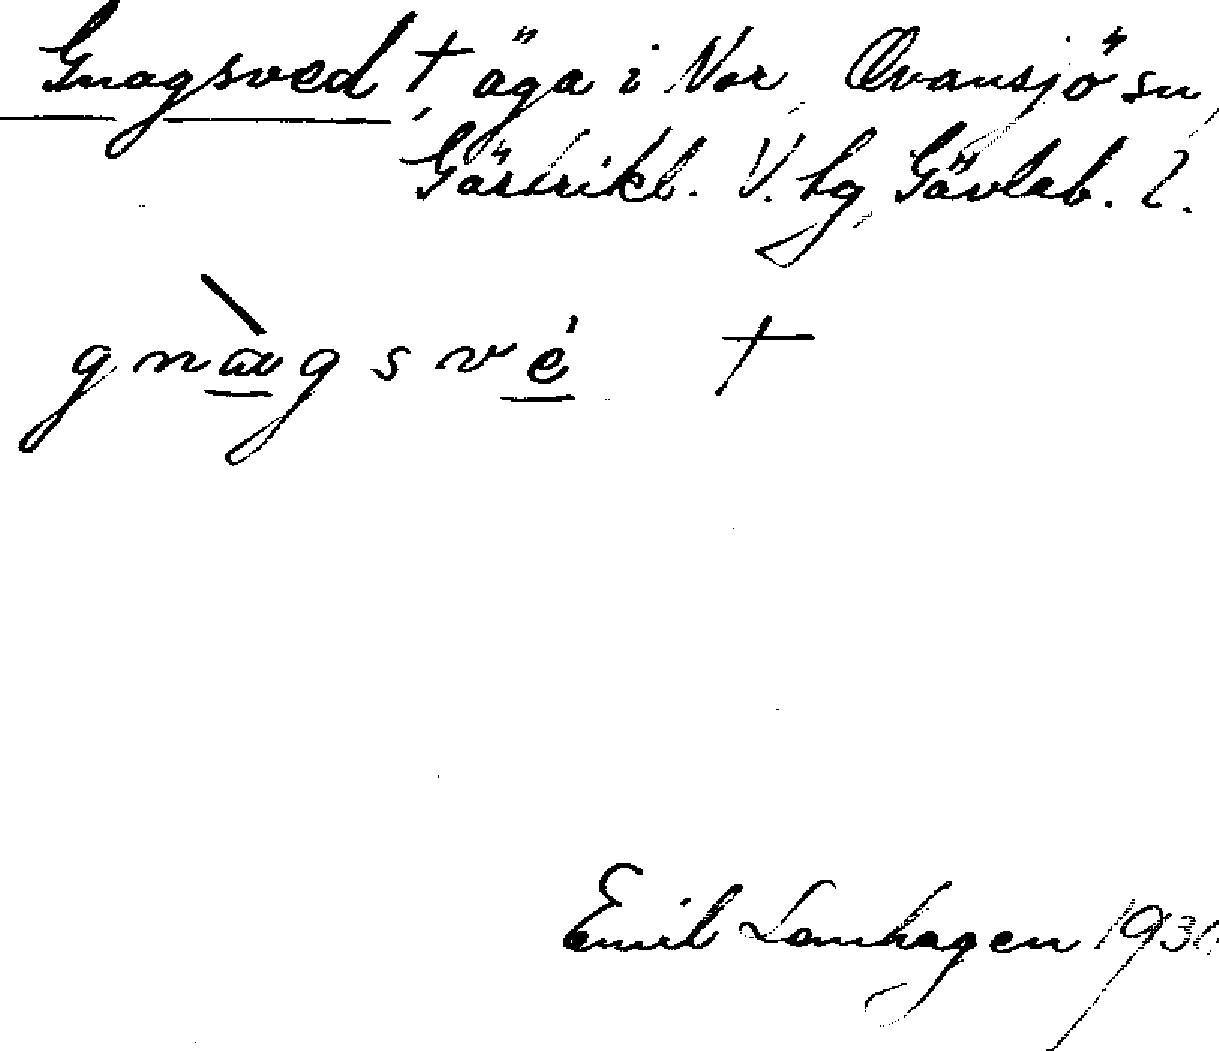 Gnagsved †, äga i Nor, Ovansjö sn,
Gästrikl. V. hg, Gävleb. l.
gnàgsvé †
Emil Lanhagen 193